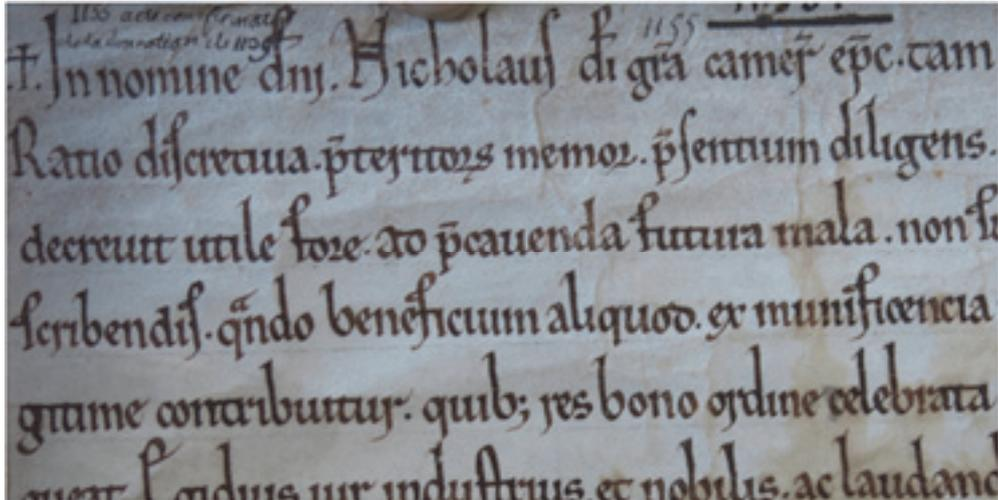 1155
1155
+. In nomine dnı. Nicholauſ di gr̄a camer̄ ep̄c. tam
Ratio diſcretiua. p̄teritoꝝ memoꝛ. p̄ſentium diligens.
decreuit utile foꝛe. ad p̄cauenda futura mala. non
ſcribendiſ. qͣndo beneficium aliquod. ex munificencia
gitime contribuitur. quib; res bono ordine celebrata
uir induſtrius et nobilis. ac laudand